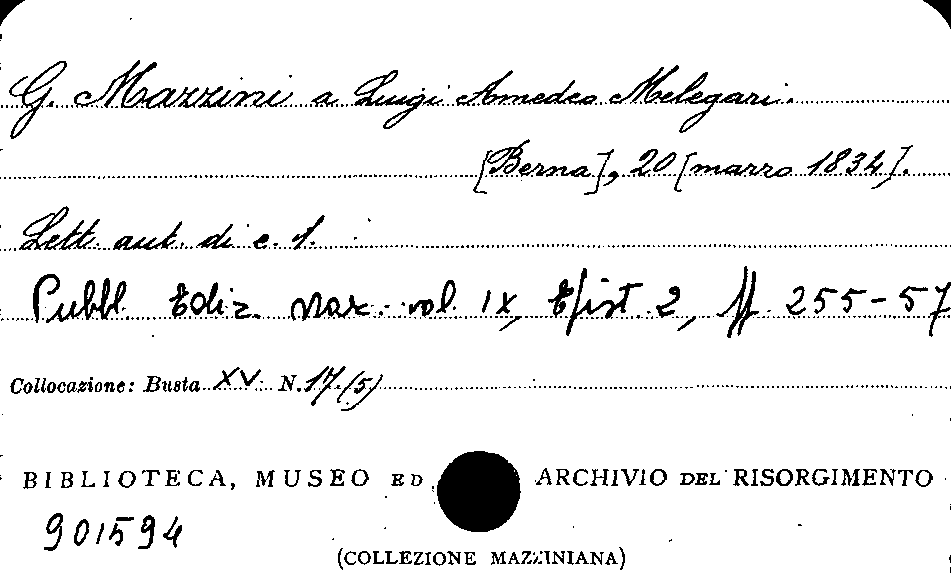 G. Mazzini a Luigi Amedeo Melegari.
[Berna], 20 [marzo 1834].
Lett. aut. di c. 1.
Pubbl. Ediz. Naz. vol. IX, Epist. 2, pp. 255-57
Collocazione: Busta XV N. 17.(5)
BIBLIOTECA, MUSEO ED ARCHIVIO DEL RISORGIMENTO
901594
(COLLEZIONE MAZZINIANA)